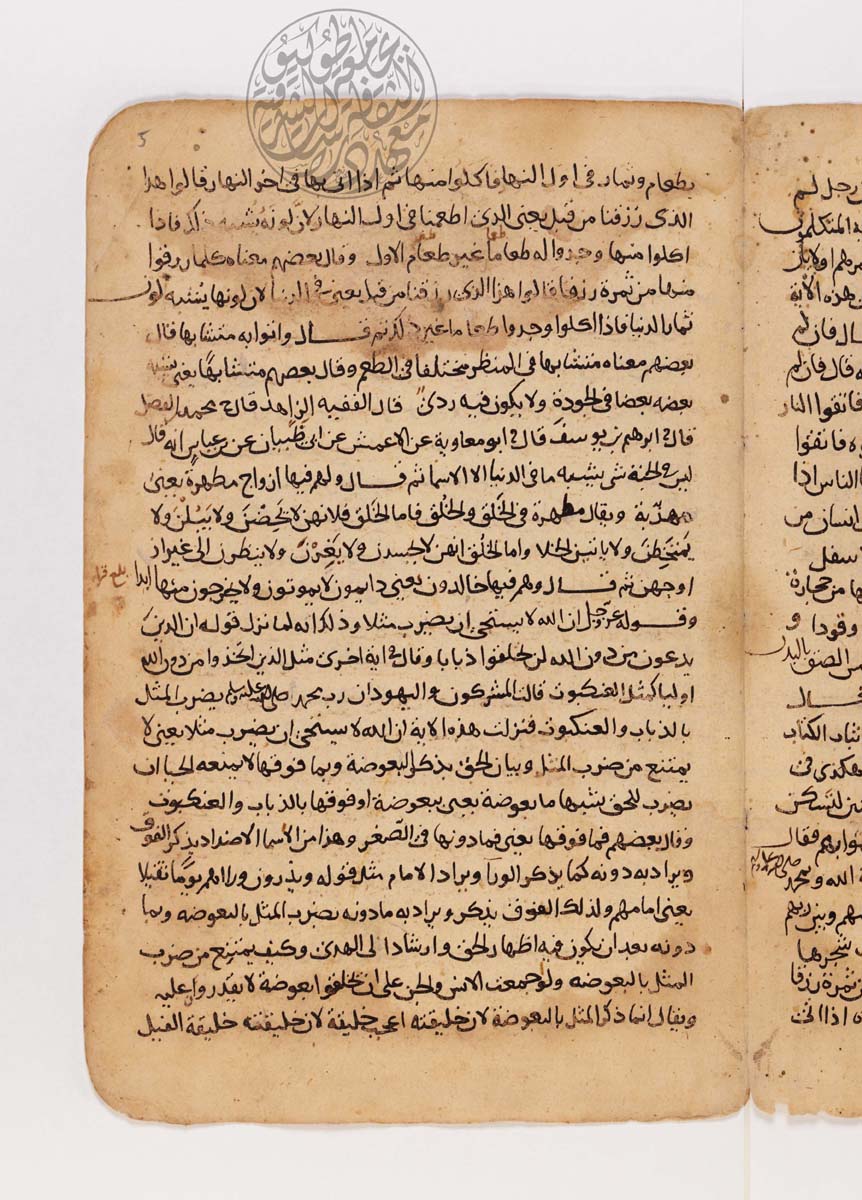 بطعام وثمار في اول النهار فاكلوا منها ثم اذا اتي بها في اخر النهار قالوا هذا
الذي رزقنا من قبل يعني الذي اطعمنا في اول النهار لان لونه يشبه ذلك فاذا
اكلوا منها وجدوا له طعاما غير طعام الاول وقال بعضهم معناه كلما رزقوا
منها من ثمرة رزقا قالوا هذا الذي رزقنا من قبل يعني في الدنيا لان لونها يشبه لون
ثمار الدنيا فاذا اكلوا وجدوا طعاما غير ذلك ثم قال واتوا به متشابها قال
بعضهم معناه متشابها في المنظر مختلفا في الطعم وقال بعضهم متشابها يعني يشبه
بعضه بعضا في الجودة ولا يكون فيه ردئ قال الفقيه الزاهد قال ح محمد بن الفضل
قال ح ابرهيم بن يوسف قال ح ابو معاوية عن الاعمش عن ابي ظبيان عن بن عباس انه قال
ليس في الجنة شي يشبه ما في الدنيا الا الاسما ثم قال ولهم فيها ازواج مطهرة يعني
مهذبة ويقال مطهرة في الخَلق والخُلق فاما الخَلق فلانهن لا يحضن ولا يبلن ولا
يتمخطن ولا ياتين الخلا واما الخُلق انهن لا يحسدن ولا يغرن ولا ينظرن الى غير از
اوجهن ثم قال وهم فيها خالدون يعني دايمون لا يموتون ولا يخرجون منها ابدا
وقوله عز وجل ان الله لا يستحي ان يضرب مثلا وذلك انه لما نزل قوله ان الذين
يدعون من دون الله لن يخلقوا ذبابا وقال في اية اخرى مثل الذين اتخذوا من دون الله
اوليا كمثل العنكبوت قالت المشركون واليهود ان رب محمد صلى الله عليه وسلم يضرب المثل
بالذباب والعنكبوت فنزلت هذه الاية ان الله لا يستحي ان يضرب مثلا يعني لا
يمتنع من ضرب المثل وبيان الحق بذكر البعوضة وبما فوقها لا يمنعه الحيا ان
يضرب للحق شبها ما بعوضة يعني ببعوضة او فوقها بالذباب والعنكبوت
وقال بعضهم فما فوقها يعني فما دونها في الصغر وهذا من الاسما الاضداد يذكر الفوق
ويراد به دونه كما يذكر الورآ ويراد الامام مثل قوله ويذرون وراهم يوما ثقيلا
يعني امامهم ولذلك الفوق يذكر ويراد به ما دونه يضرب المثل بالبعوضه وبما
دونه بعد ان يكون فيه اظهار الحق وارشادا الى الهدى وكيف يمتنع من ضرب
المثل بالبعوضه ولو جمعت الانس والجن على ان يخلقوا بعوضة لا يقدروا عليه
ويقال انما ذكر المثل بالبعوضة لان خليقته اعجب خليقة لان خليقته خليقة الفيل